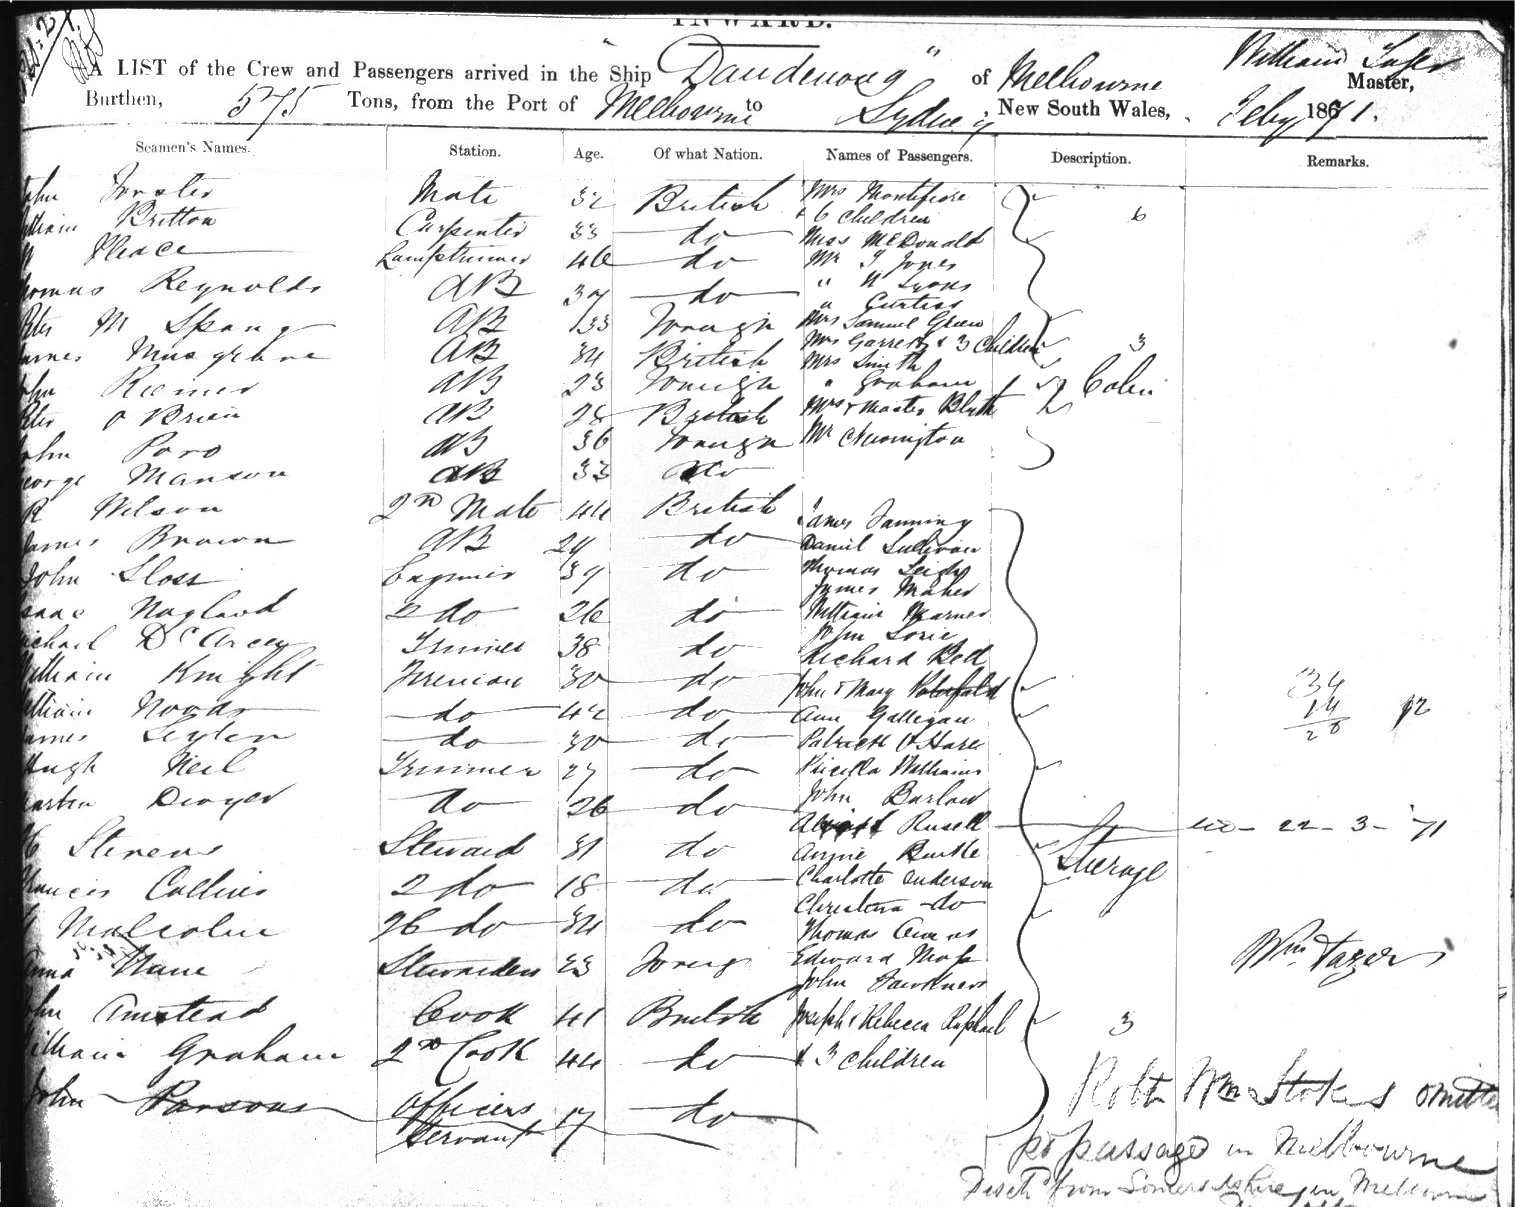 INWARD.
A LIST of the Crew and Passengers arrived in the Ship "Dandenong" of Melbourne William Master,
Burthen, 575 Tons, from the Port of Melbourne to Sydney, New South Wales, Feby 1871.
Seamen's Names. Station. Age. Of what Nation. Names of Passengers. Description. Remarks.
John Forster Mate 32 British Mrs Montefiore
+ 6 Children 6
William Britton Carpenter 33 do Miss McDonald
Peace Lamptrimmer 46 do Mr J Jones
Thomas Reynolds AB 37 do " Lyons
" Curtiss
Peter M Spang AB 33 Foreign Mrs Samuel Green
James Musgrave AB 34 British Mrs Garrett & 3 Children 3
Mrs Smith
John Reimer AB 23 Foreign " Graham Cabin
Peter O Brien AB 28 British Mrs & Master Blyth
John Poro AB 36 Foreign Mr Newington
George Manson AB 33 do
R Wilson 2nd Mate 44 British James Fanning
James Brown AB 24 do Daniel Sullivan
John Sloss Engineer 39 do Thomas Leigh
James Maher
Isaac 2 do 26 do William Warner
John
Michael DcArcey Trimmer 38 do Richard Bell
William Knight Fireman 30 do John & Mary 34
William Woods do 42 do Ann Galligan 14 12
James do 30 do Patrick O Hare 28
Hugh Neil Trimmer 27 do Pricilla Williams
John Barlow
Martin Dwyer do 26 do Russell 22 - 3 - 71
H Stevens Steward 31 do Annie Burke Steerage
Francis Collins 2 do 18 do Charlotte Anderson
Christina do
Malcolm do 34 do Thomas
Anna Stewardess 23 Foreig Edward Moss Wm
John
John Cook 41 British Joseph & Rebecca Raphael 3
William Graham 2nd Cook 44 do & 3 Children
John Parsons Officers Servant 17 do Robt Wm Stokes omitted
passage in Melbourne
from Somersetshire in Melbourne